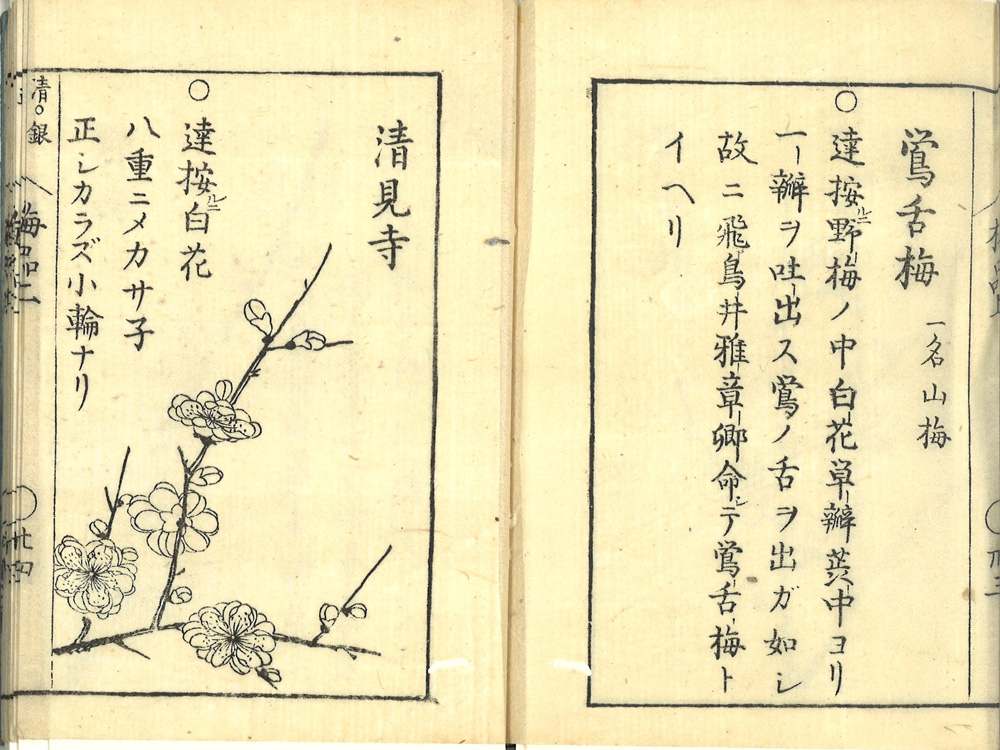 鶯舌梅 一名山梅
○達按ルニ野梅ノ中白花単辧蕋中ヨリ
一辧ヲ吐出ス鶯ノ舌ヲ出ガ如シ
故ニ飛鳥井雅章卿命シテ鶯舌梅ト
イヘリ
清見寺
○達按ルニ白花
八重ニメカサ子
正シカラズ小輪ナリ
清○銀
梅品二
廿四